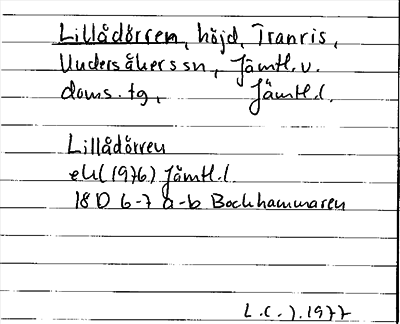 Lillådörren, höjd, Tranris,
Undersåkers sn, Jämtl. v.
doms. tg, Jämtl. l.
Lillådörren
ekl (1976) Jämtl. l
18D 6-7 a-b Bockhammaren
L. C-). 1977